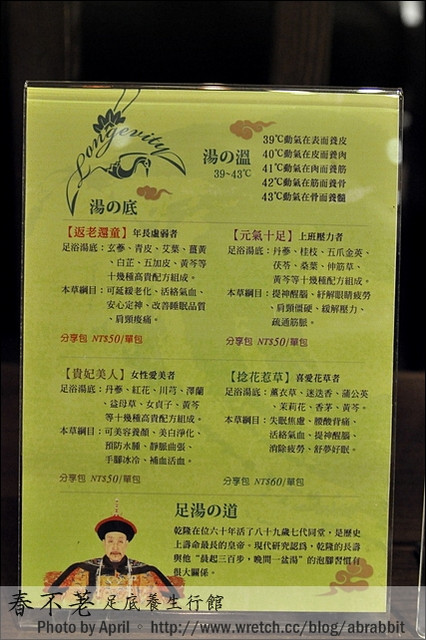 Longevity
湯の溫
39~43℃
39℃動氣在表而養皮
40℃動氣在皮而養肉
41℃動氣在肉而養筋
42℃動氣在筋而養骨
43℃動氣在骨而養髓
湯の底
【返老還童】年長虛弱者
足浴湯底：玄蔘、青皮、艾葉、薑黃
、白芷、五加皮、黃芩等
十幾種高貴配方組成。
本草綱目：可延緩老化、活絡氣血、
安心定神、改善睡眠品質
、肩頸痠痛。
分享包 NT$50/單包
【元氣十足】上班壓力者
足浴湯底：丹蔘、桂枝、五爪金英、
茯苓、桑葉、伸筋草、
黃芩等十幾種配方組成。
本草綱目：提神醒腦、紓解眼睛疲勞
、肩頸僵硬、緩解壓力、
疏通筋脈。
分享包 NT$50/單包
【貴妃美人】女性愛美者
足浴湯底：丹蔘、紅花、川芎、澤蘭
、益母草、女貞子、黃芩
等十幾種高貴配方組成。
本草綱目：可美容養顏、美白淨化、
預防水腫、靜脈曲張、
手腳冰冷、補血活血。
分享包 NT$50/單包
【捻花惹草】喜愛花草者
足浴湯底：薰衣草、迷迭香、蒲公英
、茉莉花、香茅、黃芩。
本草綱目：失眠焦慮、腰酸背痛、
活絡氣血、提神醒腦、
消除疲勞、舒夢好眠。
分享包 NT$60/單包
足湯の道
乾隆在位六十年活了八十九歲七代同堂，是歷史
上壽命最長的皇帝。現代研究認為，乾隆的長壽
與他“晨起三百步，晚間一盆湯”的泡腳習慣有
很大關係。
春不荖足底養生行館
Photo by April。http://www.wretch.cc/blog/abrabbit